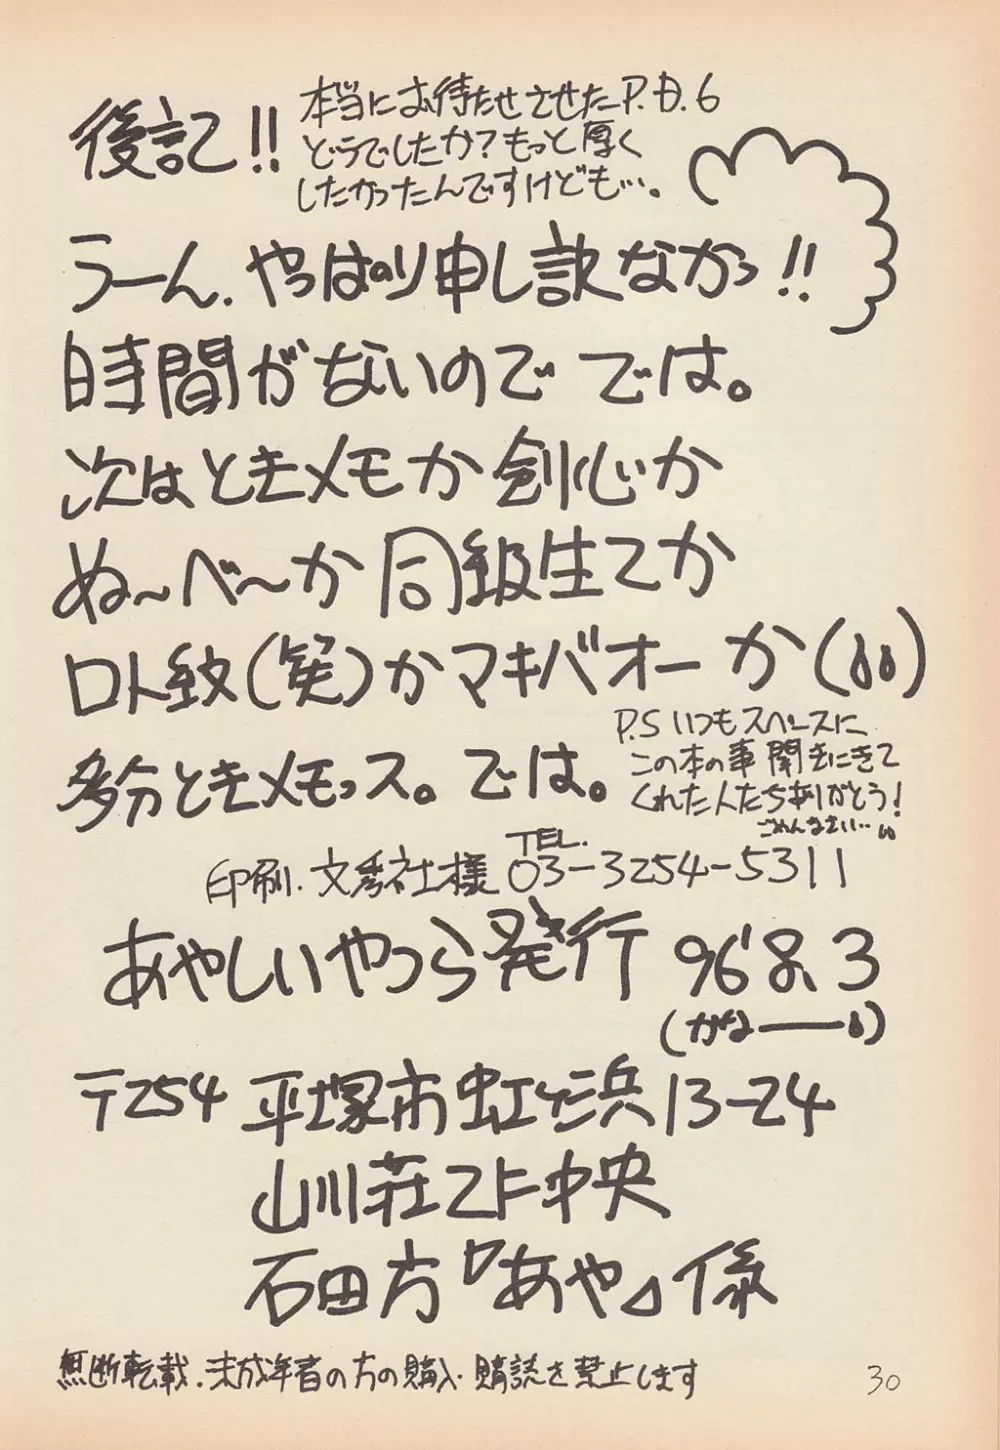 後記!!
本当にお待たせさせたP.D.6
どうでしたか?もっと厚く
したかったんですけども…。
うーん、やっぱり申し訳なかっ!!
時間がないので では。
次はときメモか剣心か
ぬ〜べ〜か同級生2か
ロト紋(笑)かマキバオーか(;;)
多分ときメモっス。では。
P.S いつもスペースに
この本の事聞きにきて
くれた人たちありがとう!
ごめんなさい…
印刷.文秀社様 TEL. 03-3254-5311
あやしいやつら発行 96'8.3
(かなー)
〒254 平塚市虹ケ浜13-24
山川荘2F中央
石田方『あや』係
無断転載.未成年者の方の購入.購読を禁止します
30